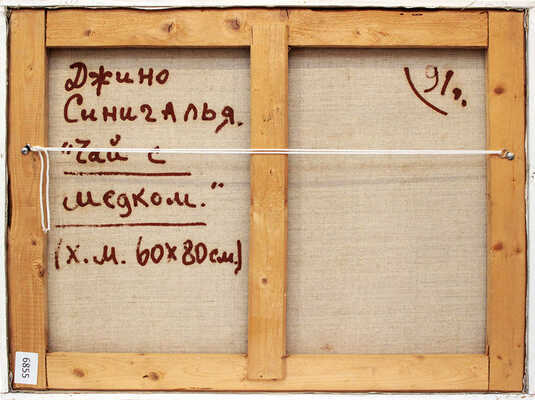 Джино
Синигалья.
"Чай с
медком."
(х.м. 60х80см.)
91г.
6855